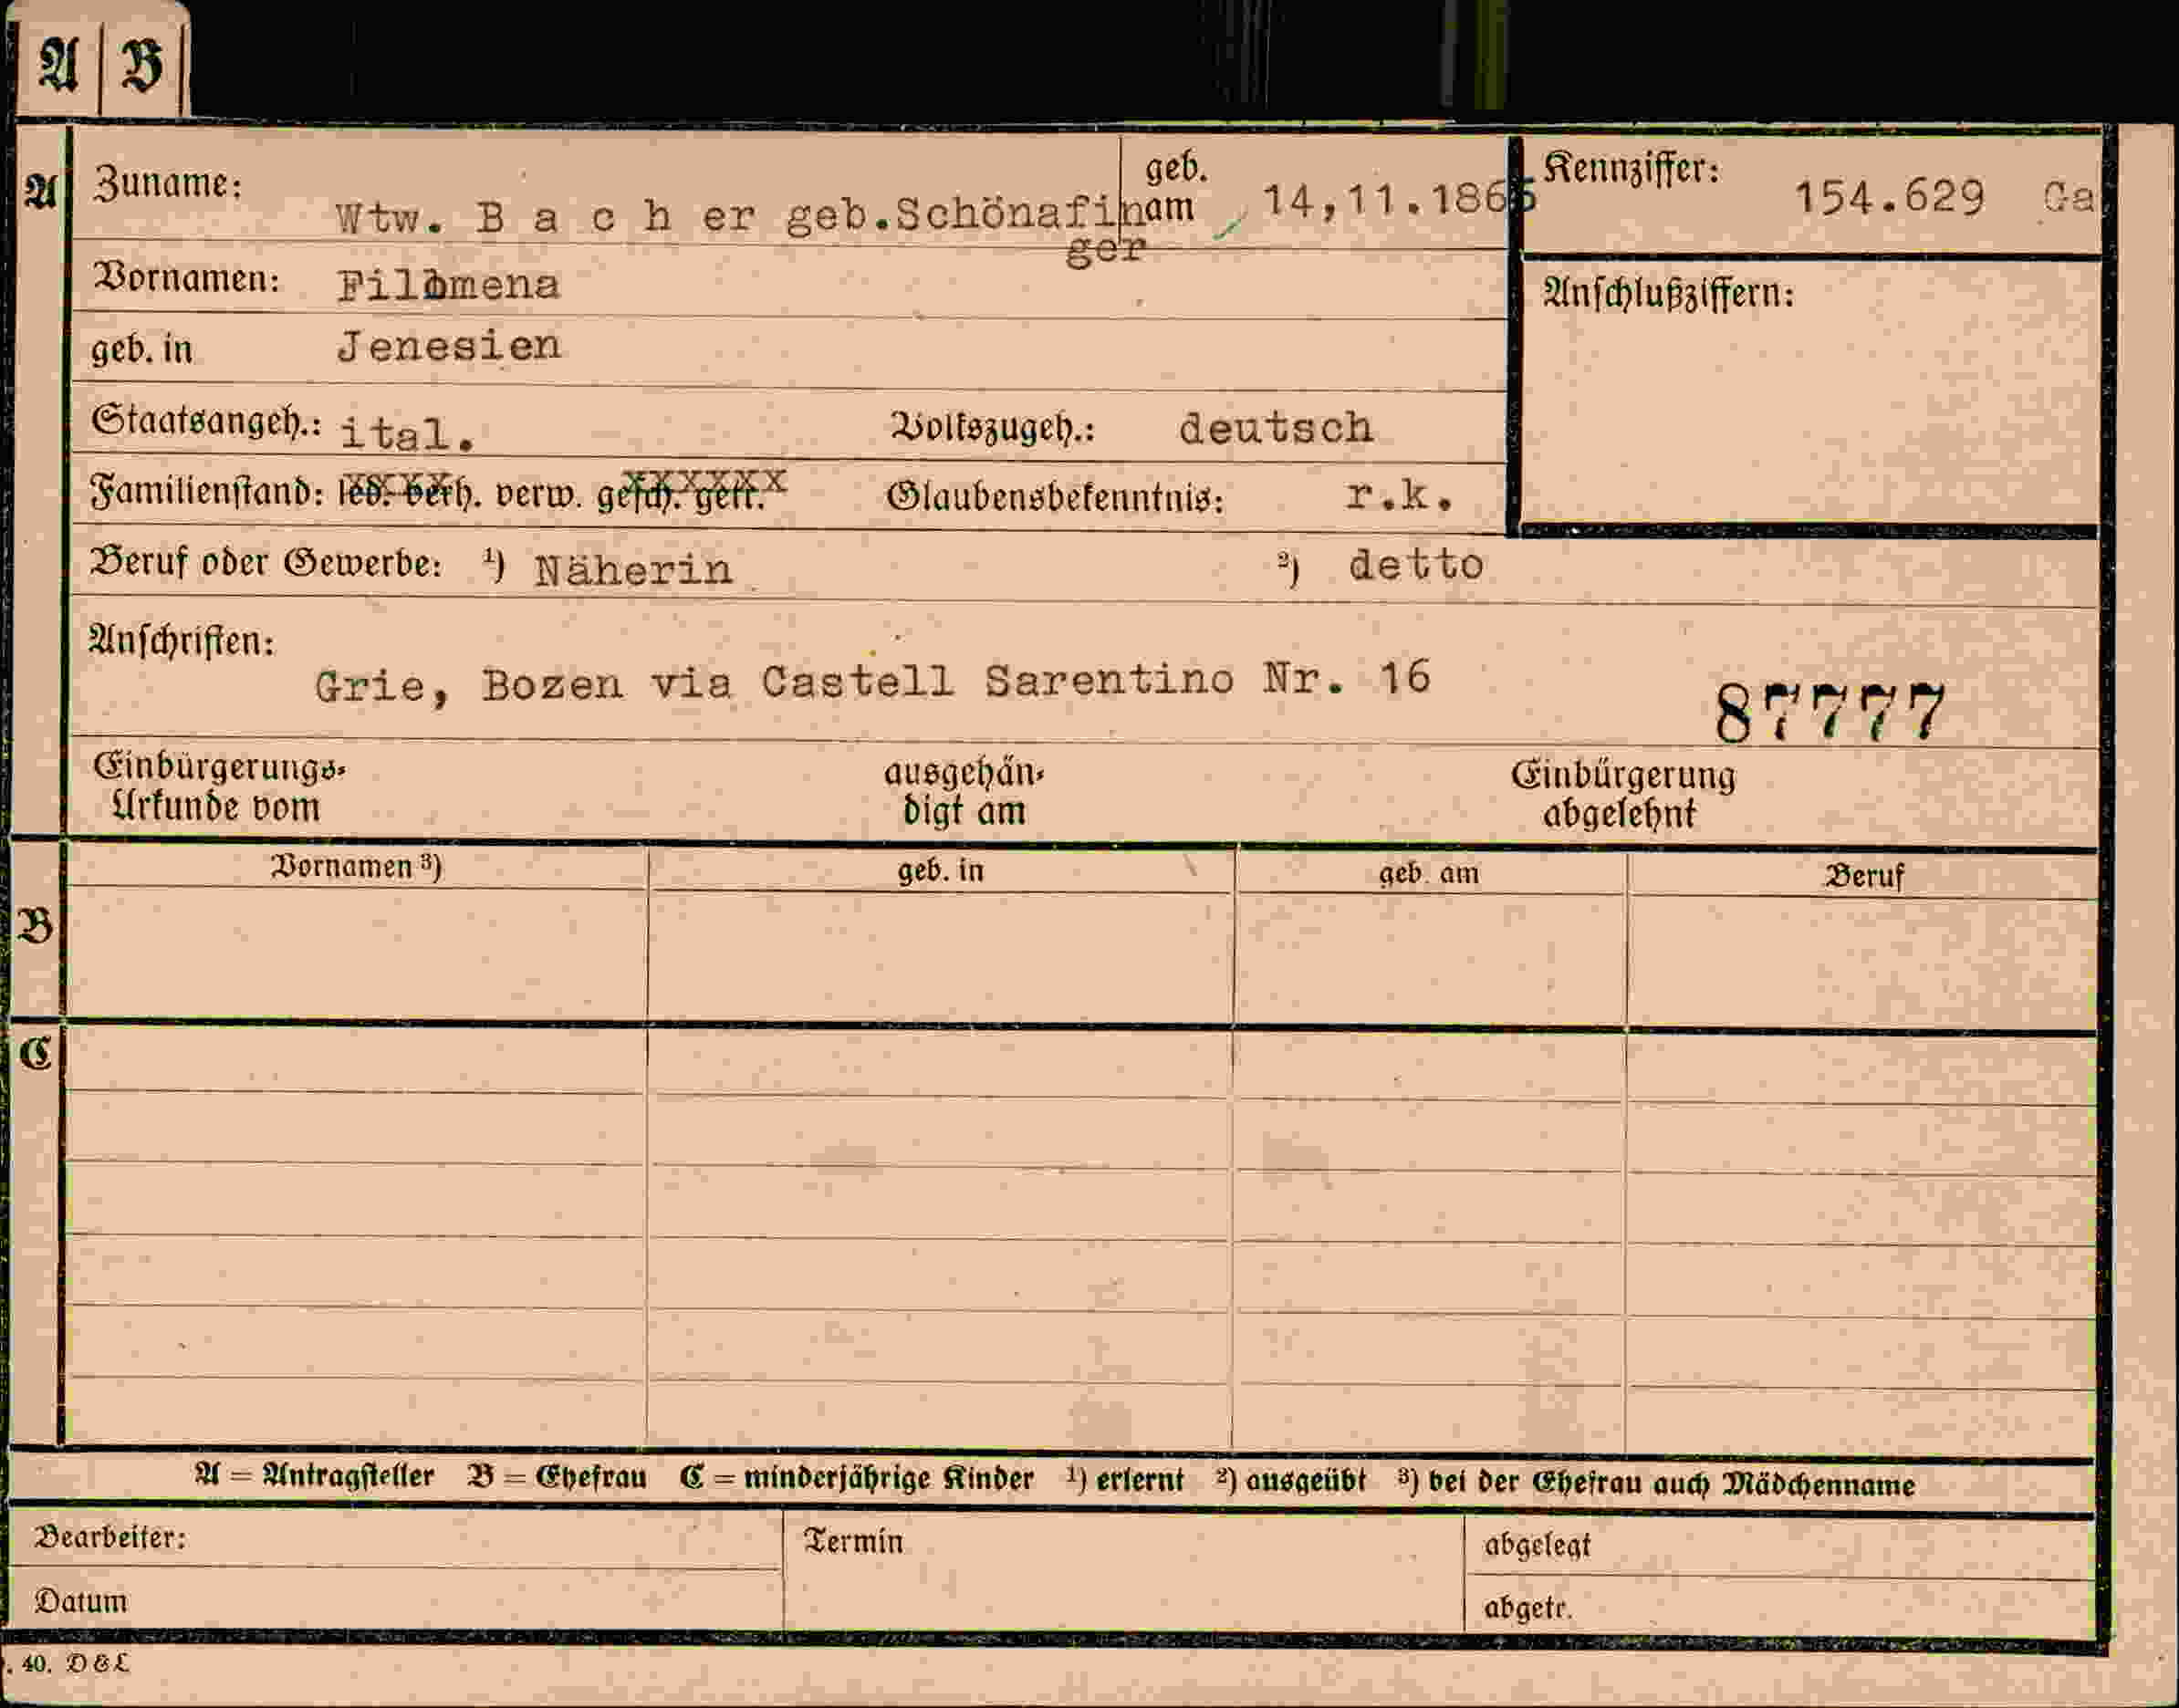 A B
A Zuname: Wtw. B a c h er geb.Schönafin geb. am 14,11.1865 Kennziffer: 154.629 Ga
ger
Vornamen: Filomena Anschlußziffern:
geb. in Jenesien
Staatsangeh.: ital. Volkszugeh.: deutsch
Familienstand: led. verh. verw. gesch. getr. Glaubensbekenntnis: r.k.
Beruf oder Gewerbe: ¹) Näherin ²) detto
Anschriften:
Grie, Bozen via Castell Sarentino Nr. 16
87777
Einbürgerungs- ausgehän- Einbürgerung
Urkunde vom digt am abgelehnt
Vornamen ³) geb. in geb. am Beruf
B
C
A = Antragsteller B = Ehefrau C = minderjährige Kinder ¹) erlernt ²) ausgeübt ³) bei der Ehefrau auch Mädchenname
Bearbeiter: Termin abgelegt
Datum abgetr.
. 40. D & L